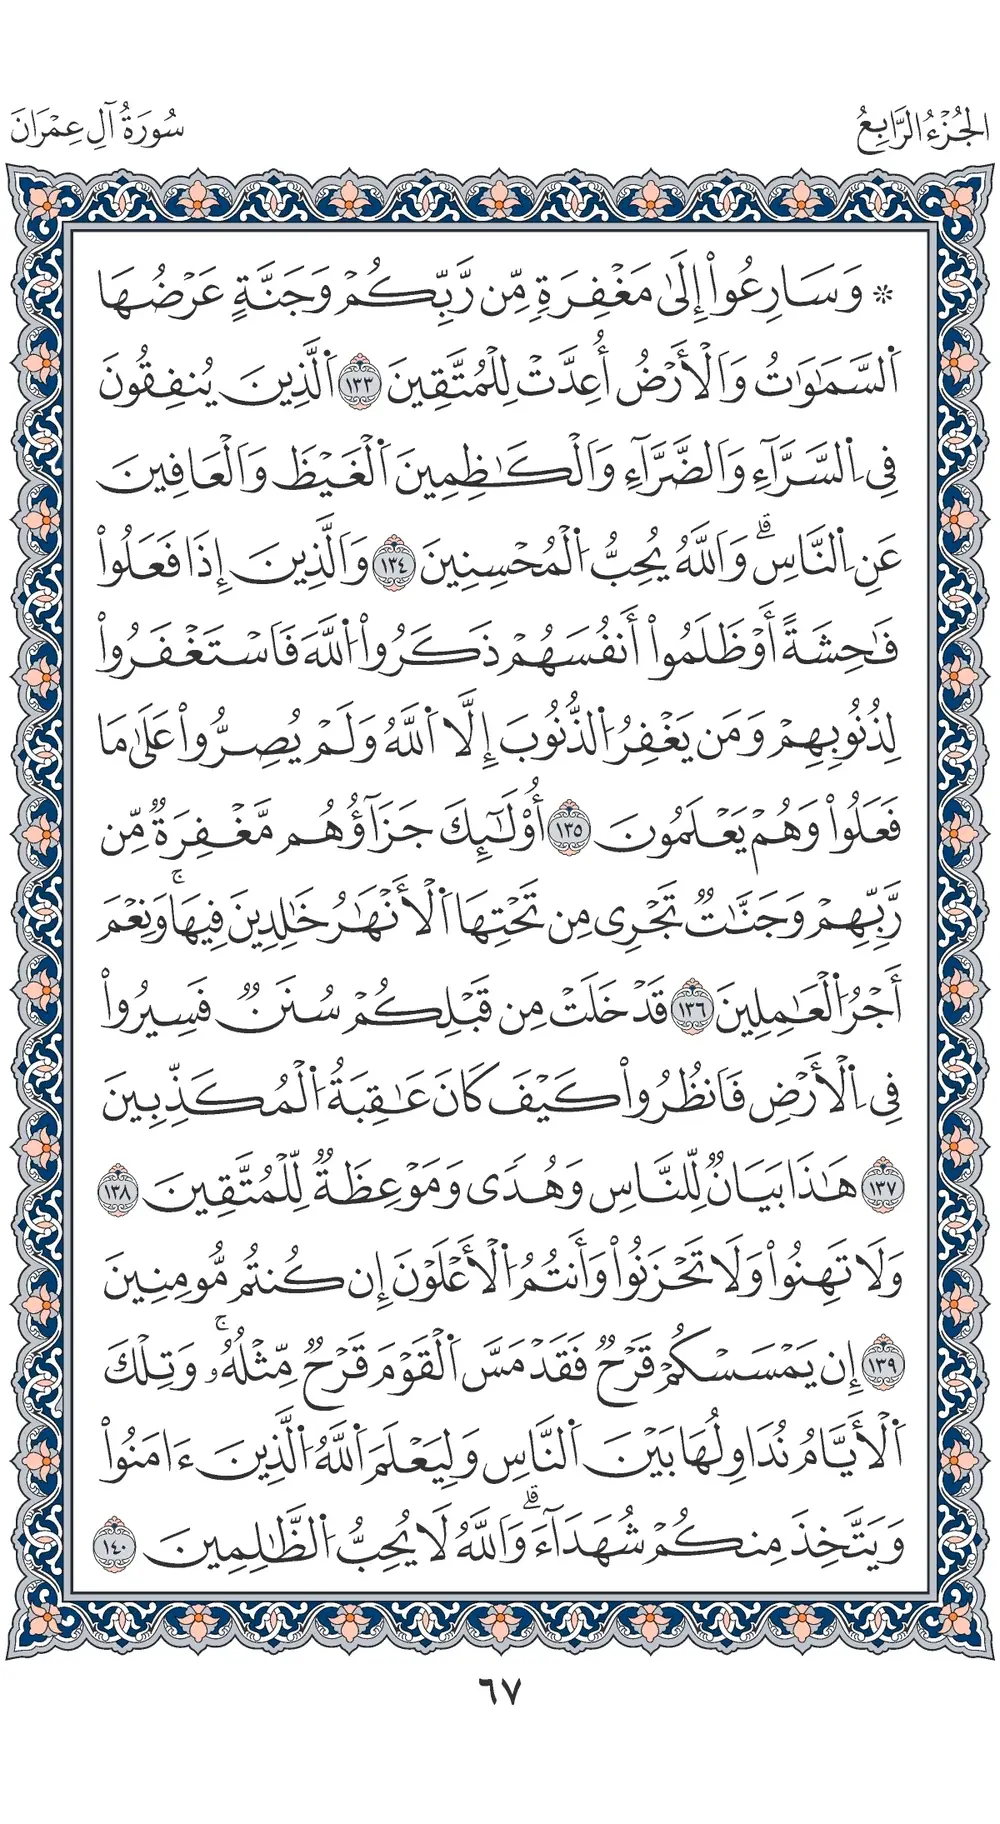 الجُزْءُ الرَّابِعُ
سُورَةُ آلِ عِمْرَانَ
۞ وَسَارِعُوٓاْ إِلَىٰ مَغْفِرَةٖ مِّن رَّبِّكُمْ وَجَنَّةٍ عَرْضُهَا
اَ۬لسَّمَٰوَٰتُ وَالْأَرْضُ أُعِدَّتْ لِلْمُتَّقِينَ ١٣٣ اَ۬لَّذِينَ يُنفِقُونَ
فِي اِ۬لسَّرَّآءِ وَالضَّرَّآءِ وَالْكَٰظِمِينَ اَ۬لْغَيْظَ وَالْعَافِينَ
عَنِ اِ۬لنَّاسِۗ وَاللَّهُ يُحِبُّ اُ۬لْمُحْسِنِينَ ١٣٤ وَالَّذِينَ إِذَا فَعَلُواْ
فَٰحِشَةً أَوْ ظَلَمُوٓاْ أَنفُسَهُمْ ذَكَرُواْ اُ۬للَّهَ فَاسْتَغْفَرُواْ
لِذُنُوبِهِمْ وَمَن يَغْفِرُ اُ۬لذُّنُوبَ إِلَّا اَ۬للَّهُ وَلَمْ يُصِرُّواْ عَلَىٰ مَا
فَعَلُواْ وَهُمْ يَعْلَمُونَ ١٣٥ أُوْلَٰٓئِكَ جَزَآؤُهُم مَّغْفِرَةٞ مِّن
رَّبِّهِمْ وَجَنَّٰتٞ تَجْرِي مِن تَحْتِهَا اَ۬لْأَنْهَٰرُ خَٰلِدِينَ فِيهَاۚ وَنِعْمَ
أَجْرُ اُ۬لْعَٰمِلِينَ ١٣٦ قَدْ خَلَتْ مِن قَبْلِكُمْ سُنَنٞ فَسِيرُواْ
فِي اِ۬لْأَرْضِ فَانظُرُواْ كَيْفَ كَانَ عَٰقِبَةُ اُ۬لْمُكَذِّبِينَ
١٣٧ هَٰذَا بَيَانٞ لِّلنَّاسِ وَهُدٗى وَمَوْعِظَةٞ لِّلْمُتَّقِينَ ١٣٨
وَلَا تَهِنُواْ وَلَا تَحْزَنُواْ وَأَنتُمُ اُ۬لْأَعْلَوْنَ إِن كُنتُم مُّومِنِينَ
١٣٩ إِن يَمْسَسْكُمْ قَرْحٞ فَقَدْ مَسَّ اَ۬لْقَوْمَ قَرْحٞ مِّثْلُهُۥۚ وَتِلْكَ
اَ۬لْأَيَّامُ نُدَاوِلُهَا بَيْنَ اَ۬لنَّاسِ وَلِيَعْلَمَ اَ۬للَّهُ اُ۬لَّذِينَ ءَامَنُواْ
وَيَتَّخِذَ مِنكُمْ شُهَدَآءَۗ وَاللَّهُ لَا يُحِبُّ اُ۬لظَّٰلِمِينَ ١٤٠
٦٧